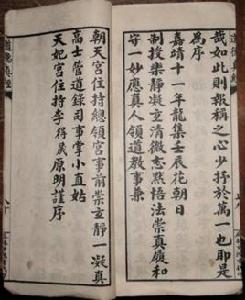 哉如此則報稱之心少抒於萬一也即是
為序
嘉靖十一年龍集壬辰花朝日
制授崇靜凝玄清微志默悟法崇真履和
守一妙應真人領道教事兼
朝天宮住持總領宮事前崇玄靜一凝真
高士管道錄司事掌小直姑
天妃宮住持李得晟原明謹序